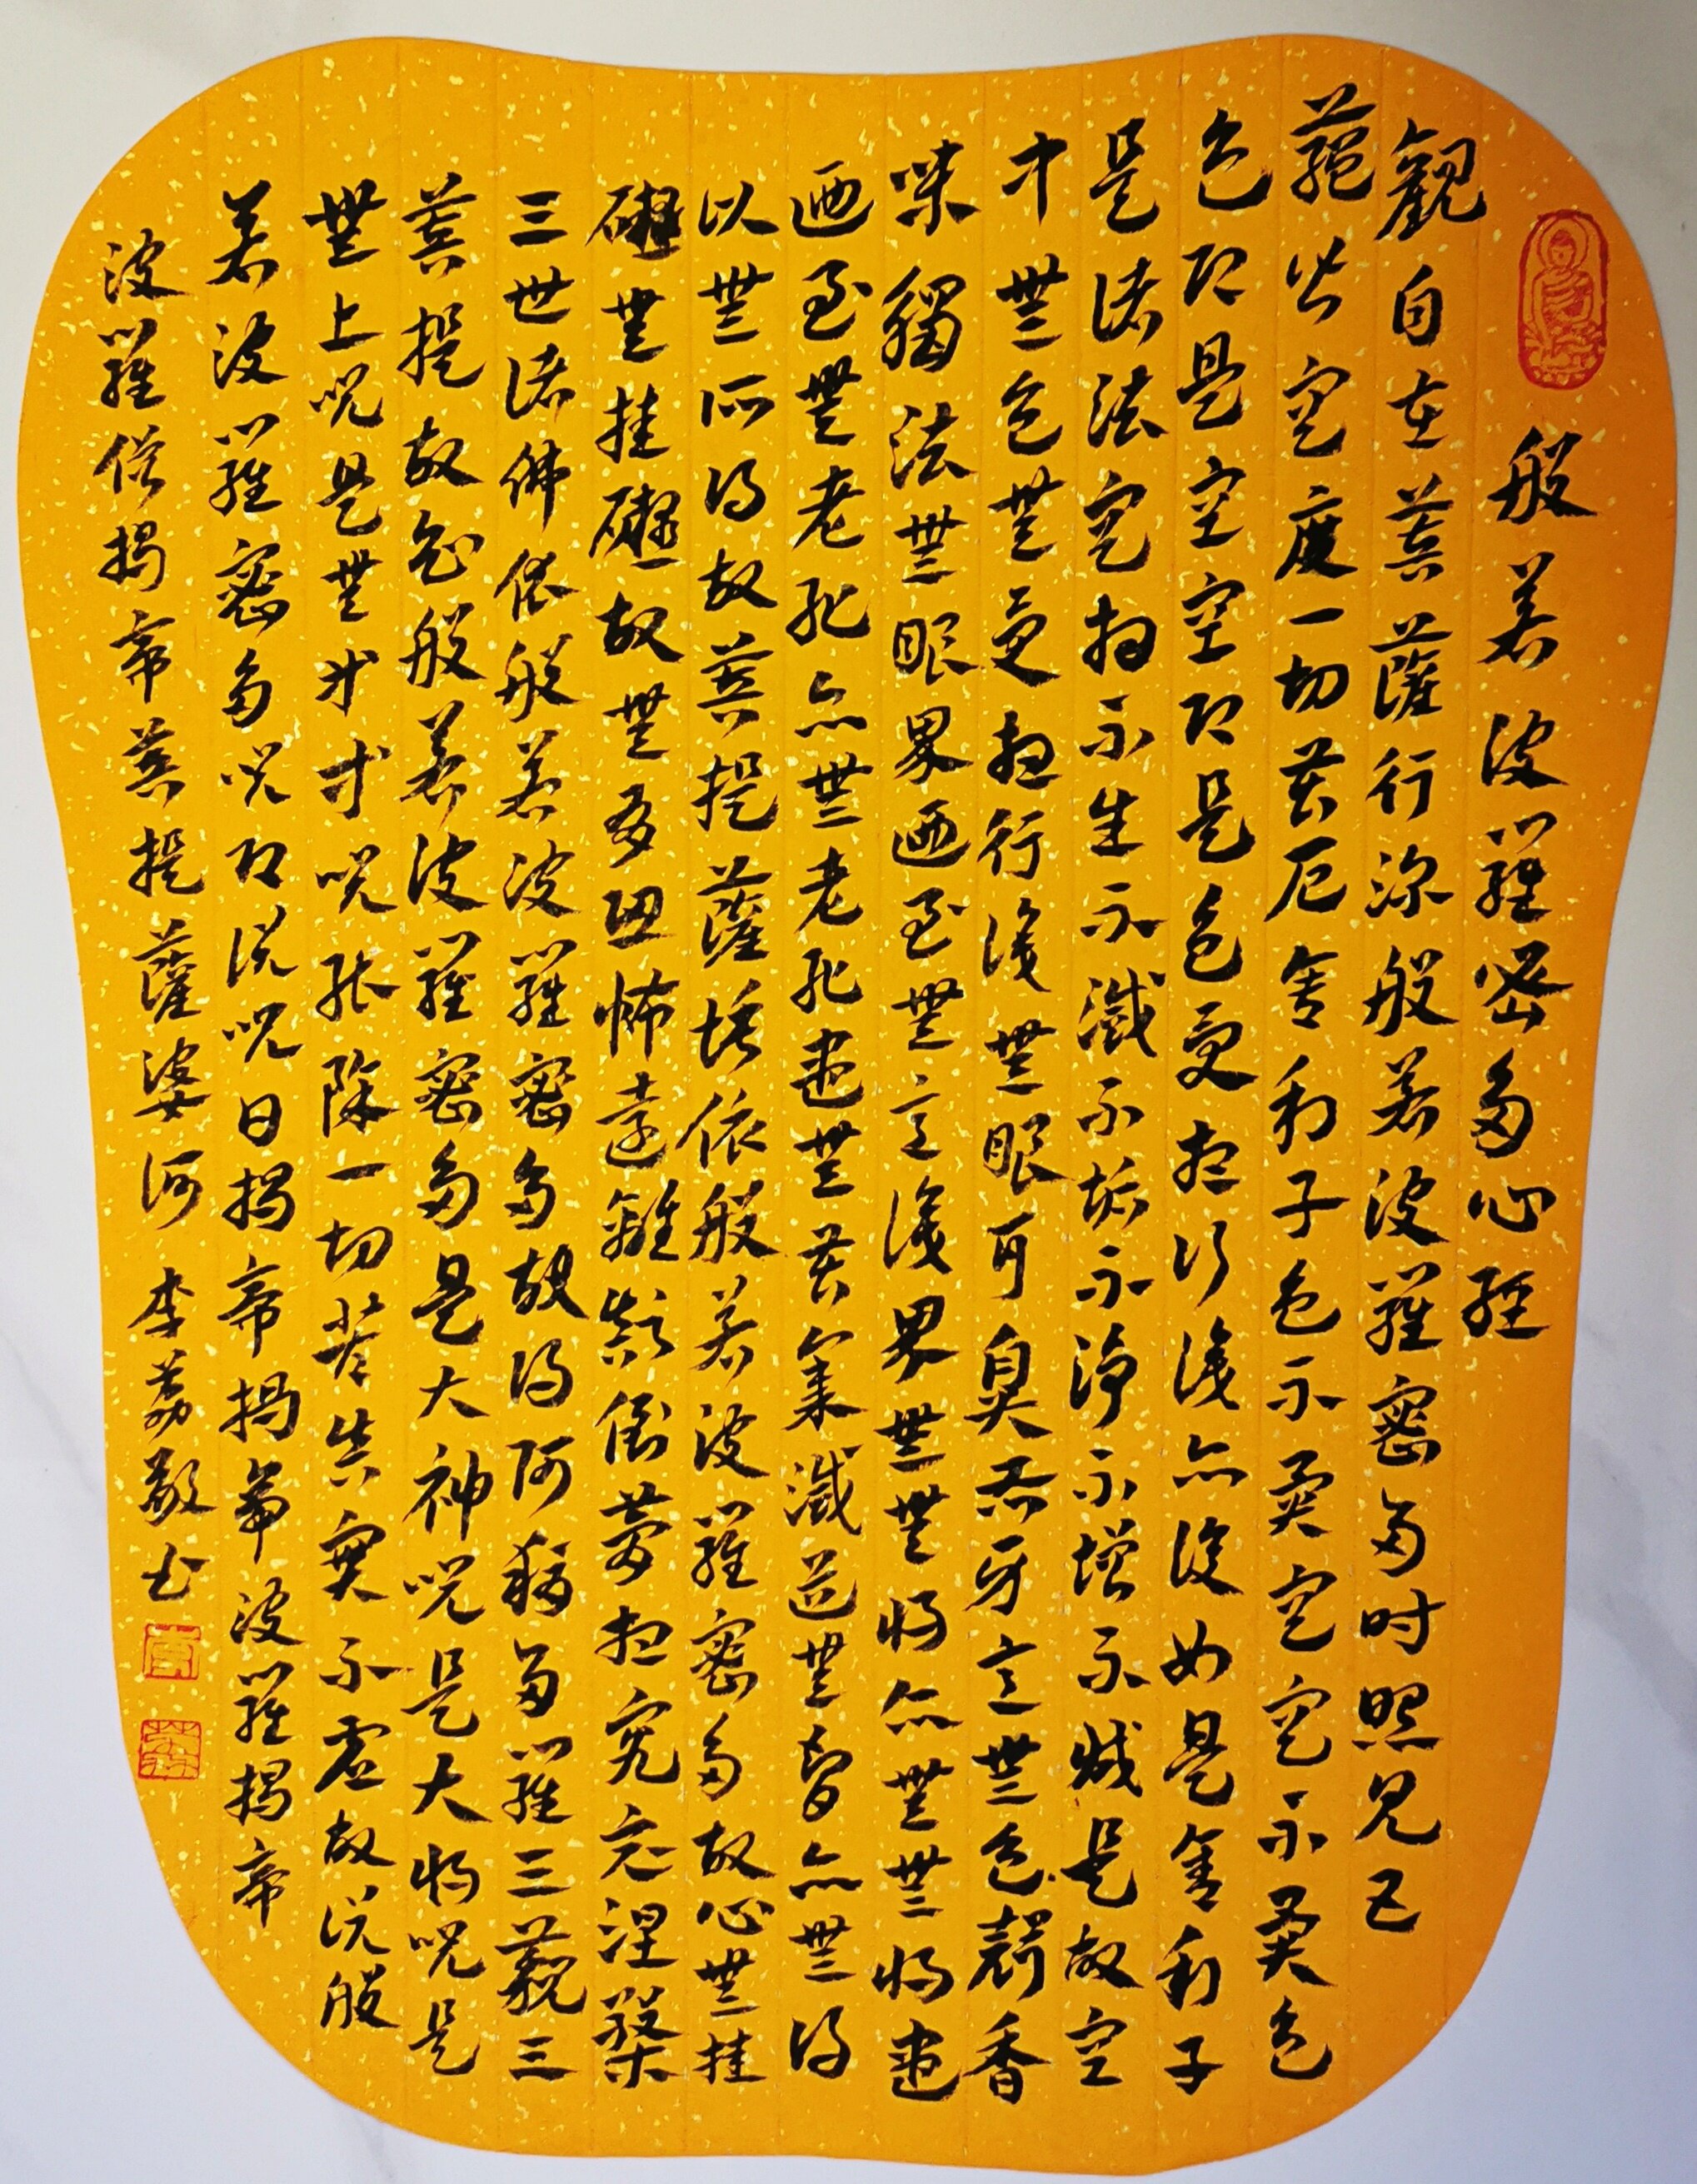 般若波羅密多心經
觀自在菩薩行深般若波羅密多時照見五
蘊皆空度一切苦厄舍利子色不異空空不異色
色即是空空即是色受想行識亦復如是舍利子
是諸法空相不生不滅不垢不淨不增不減是故空
中無色無受想行識無眼耳鼻舌身意無色聲香
味觸法無眼界迺至無意識界無無明亦無無明盡
迺至無老死亦無老死盡無苦集滅道無智亦無得
以無所得故菩提薩埵依般若波羅密多故心無挂
礙無挂礙故無有恐怖遠離顛倒夢想究竟涅槃
三世諸佛依般若波羅密多故得阿耨多羅三藐三
菩提故知般若波羅密多是大神咒是大明咒是
無上咒是無等等咒能除一切苦真實不虛故說般
若波羅密多咒即說咒曰揭帝揭帝波羅揭帝
波羅僧揭帝菩提薩婆訶 李荔敬書
李